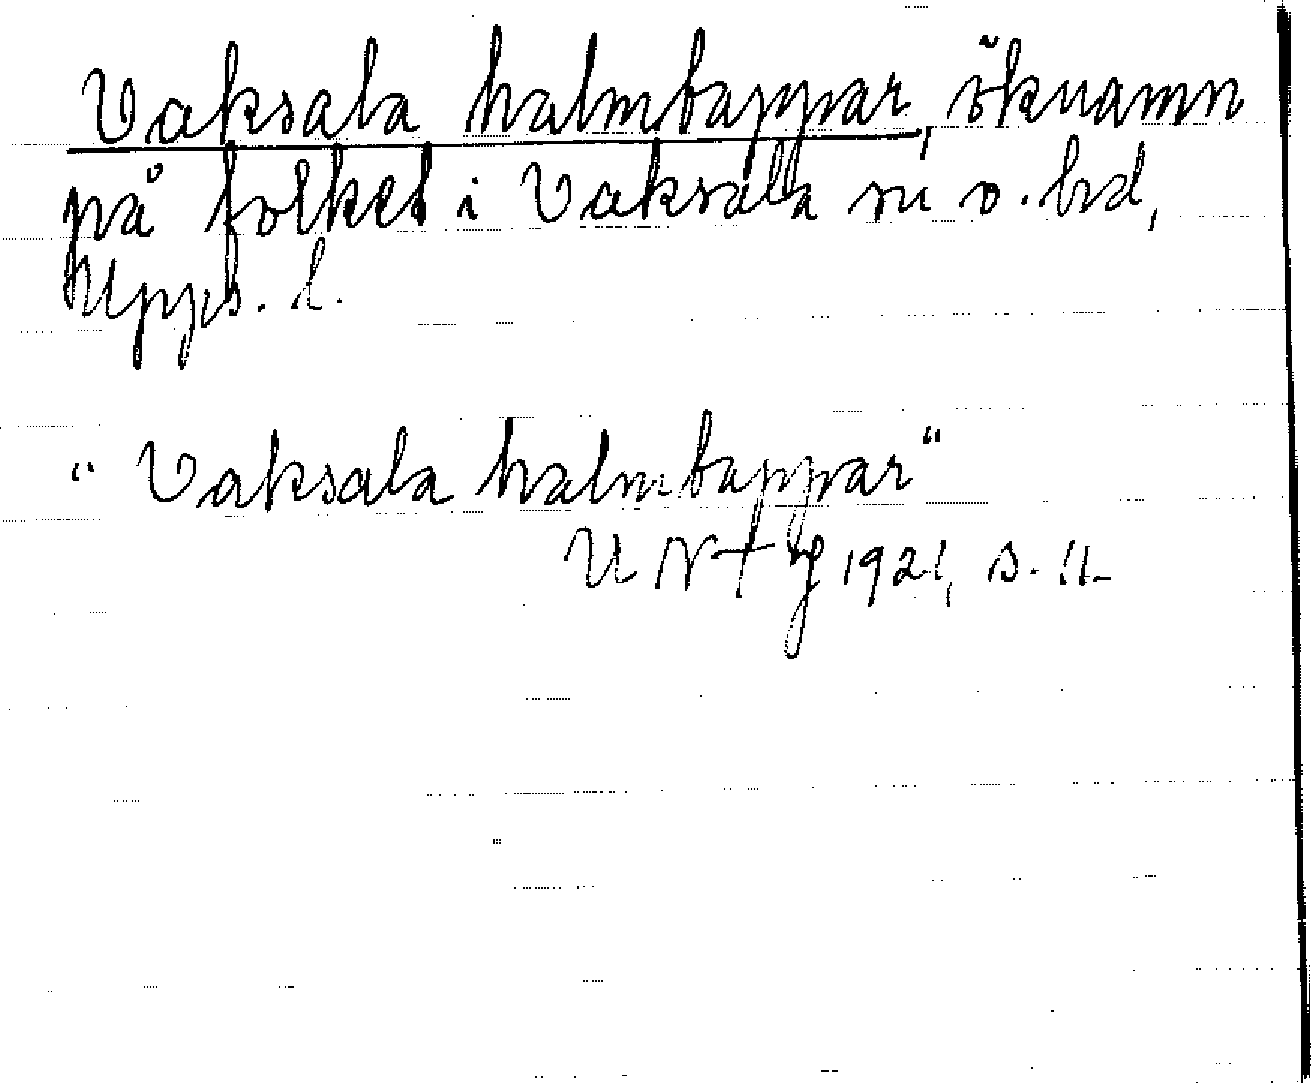 Vaksala halmtappar, öknamn
på folket i Vaksala sn o. hd,
Upps. l.
"Vaksala halmtappar"
UNT 1921, s. 11